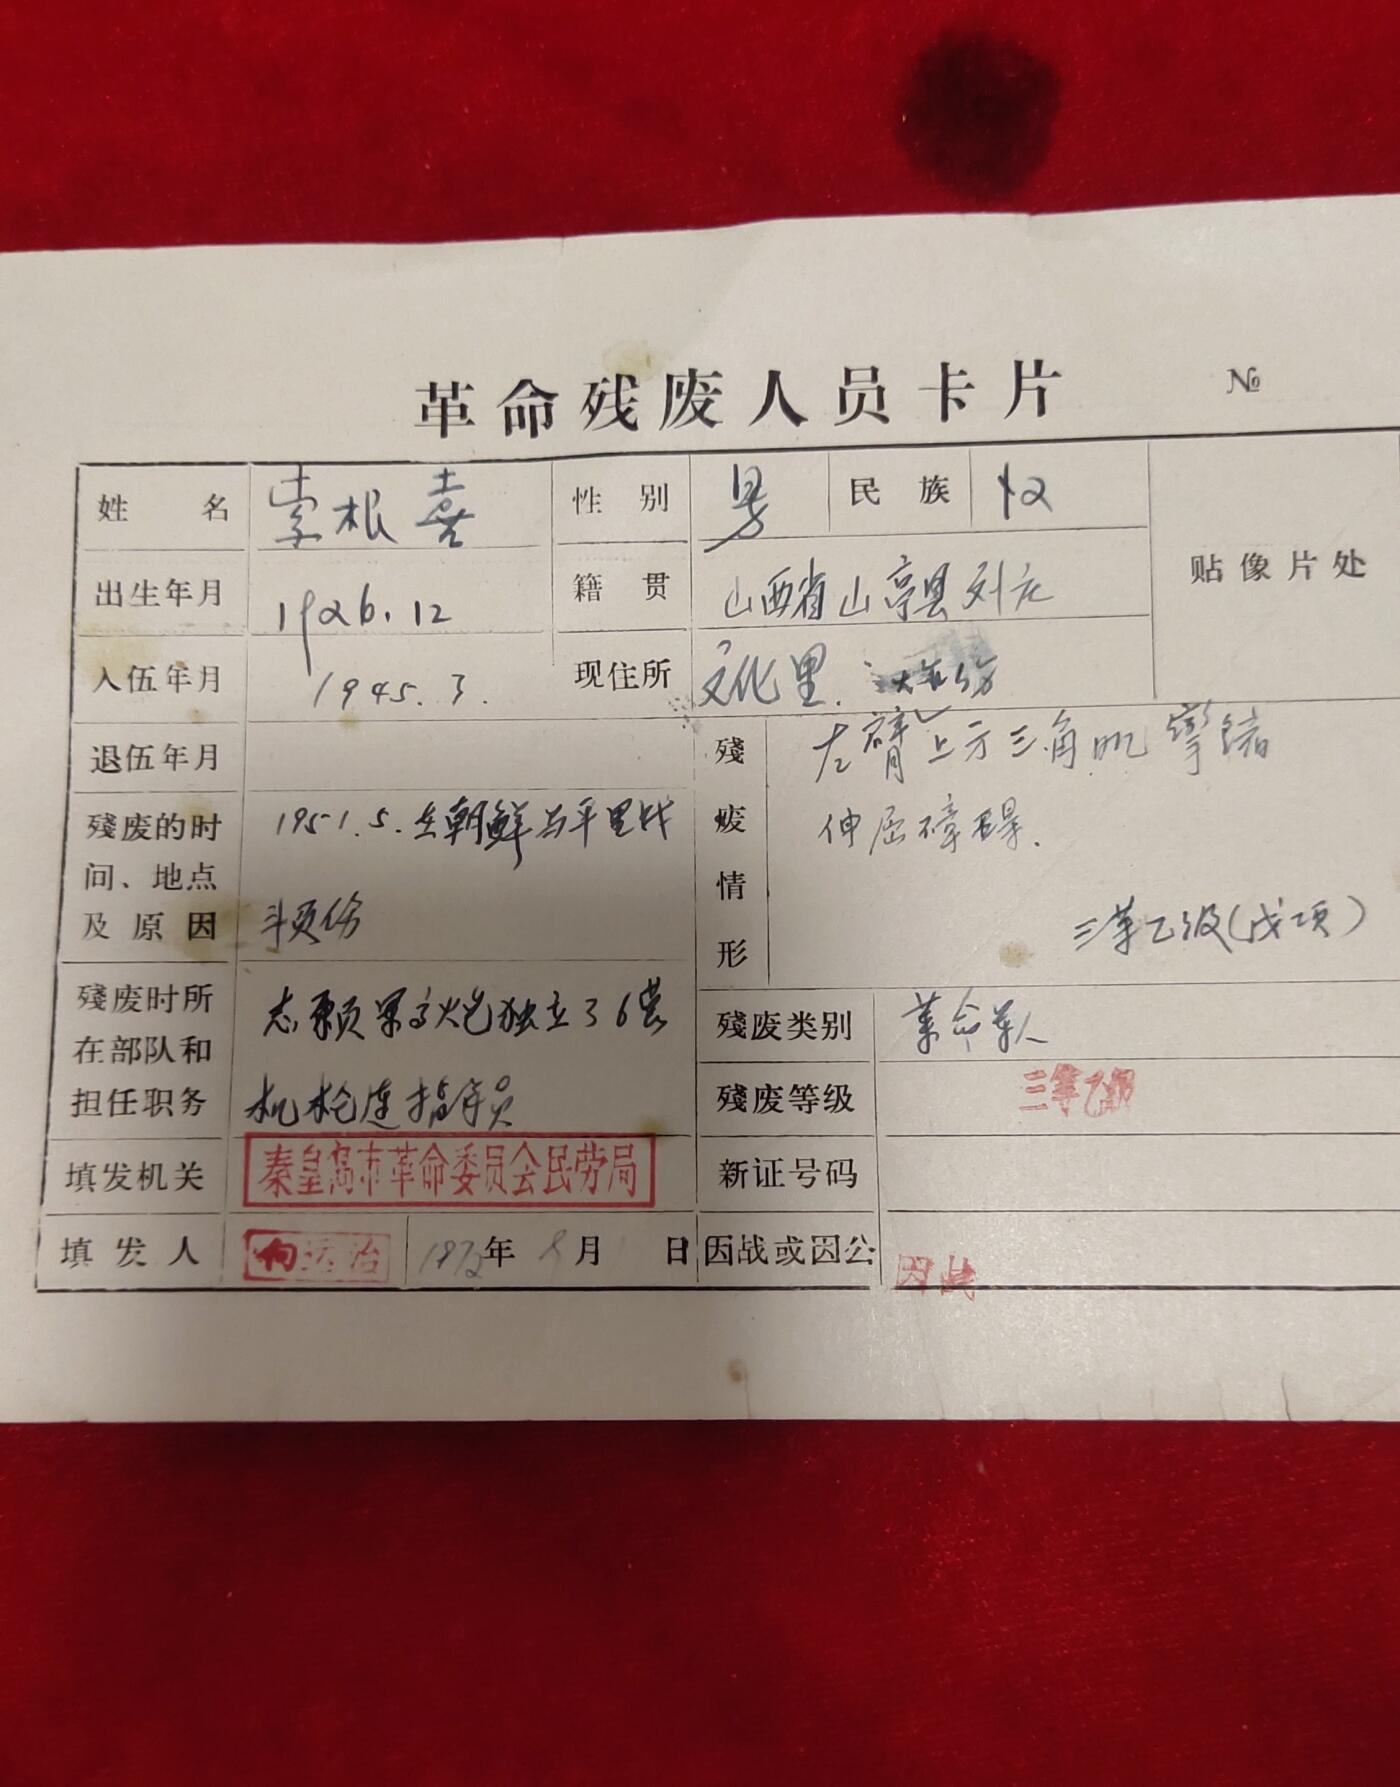 革命残废人员卡片 №
姓名 索根喜 性别 男 民族 汉 贴像片处
出生年月 1926.12 籍贯 山西省山亭县刘庄
入伍年月 1945.3. 现住所 文化里.
退伍年月
残废情形 左臂上方三角肌挛缩
伸屈障碍.
三等乙级(戊项)
残废的时间、地点及原因 1951.5.在朝鲜与平里战
斗负伤
残废时所在部队和担任职务 志愿军高炮独立36营
机枪连指导员
残废类别 革命军人
残废等级 三等乙级
填发机关 秦皇岛市革命委员会民劳局
新证号码
填发人 年 月 日
因战或因公 因战